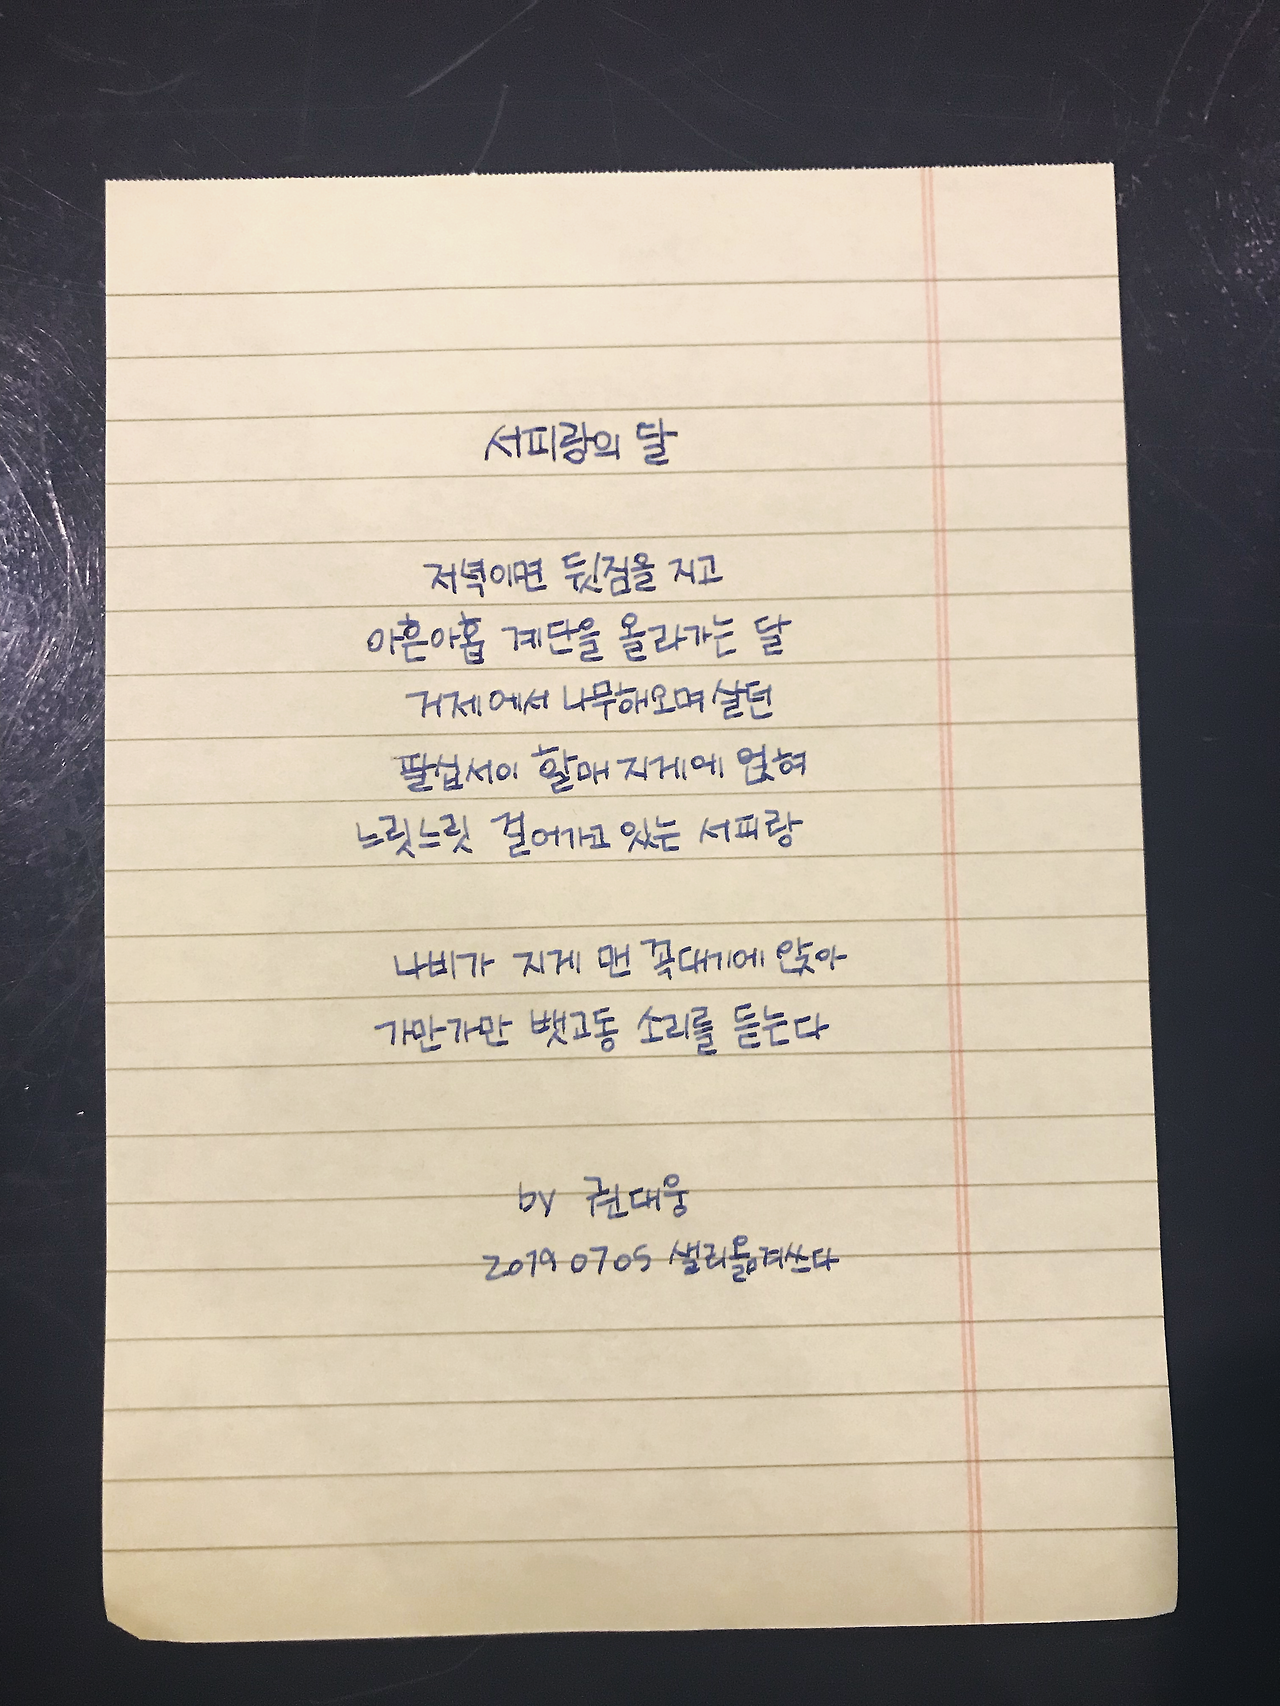 서피랑의 달
저녁이면 뒷짐을 지고
아흔아홉 계단을 올라가는 달
거제에서 나무해오며 살던
팔십서이 할매 지게에 얹혀
느릿느릿 걸어가고 있는 서피랑
나비가 지게 맨 꼭대기에 앉아
가만가만 뱃고동 소리를 듣는다
by 권대웅
2019 0705 샐리옮겨쓰다